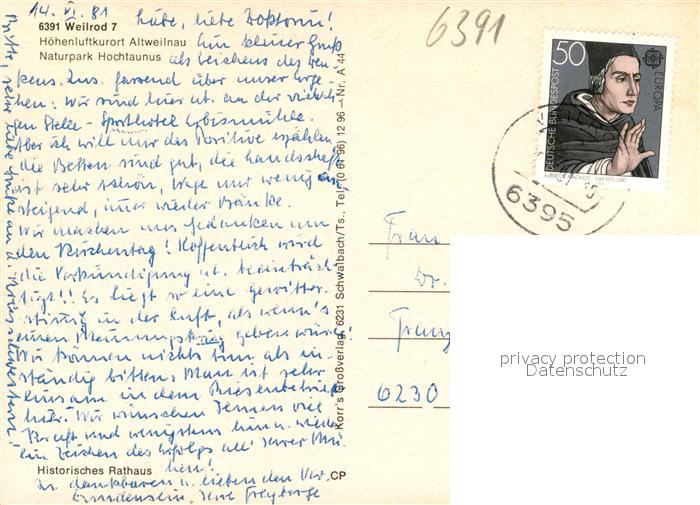 14. VI. 81
6391 Weilrod 7
Höhenluftkurort Altweilnau
Naturpark Hochtaunus
liebe, liebe Doktorin!
Ein kleiner Gruß
als Zeichen des Den-
kens. Zus. fassend über unser Erge-
hen: Wir sind hier nt. an der richti-
gen Stelle - Sporthotel Erbismühle.
Aber ich will nur das Positive erzählen
die Betten sind gut, die Landschaft
ist sehr schön, Wege nur wenig an
steigend, immer wieder Bänke.
Wir machen uns Gedanken um
den Kirchentag! Hoffentlich wird
die Verkündigung nt. beeinträch-
tigt!! Es liegt so eine Gewitter
stimmg in der Luft, als wenn's
einen Meinungskrieg geben würde!
Wir können nichts tun als in-
ständig bitten. Man ist sehr
einsam in dem Riesenbetrieb
hier. Wir wünschen Ihnen viel
Kraft und wenigstens hin u. wieder
ein Zeichen des Erfolgs all' Ihrer Mü-
hen!
In dankbarem u. lieben den Ver
bundensein, Ihre
Bitte, sehr liebe Grüße an d.
Historisches Rathaus
CP
Korr's Großverlag, 6231 Schwalbach/Ts., Tel. (0 61 96) 12 96 – Nr. A 44
6391
50
DEUTSCHE BUNDESPOST
EUROPA
CEPT
ALBERTUS MAGNUS · UM 1193-1280
6395
Frau
Dr.
6230
privacy protection
Datenschutz